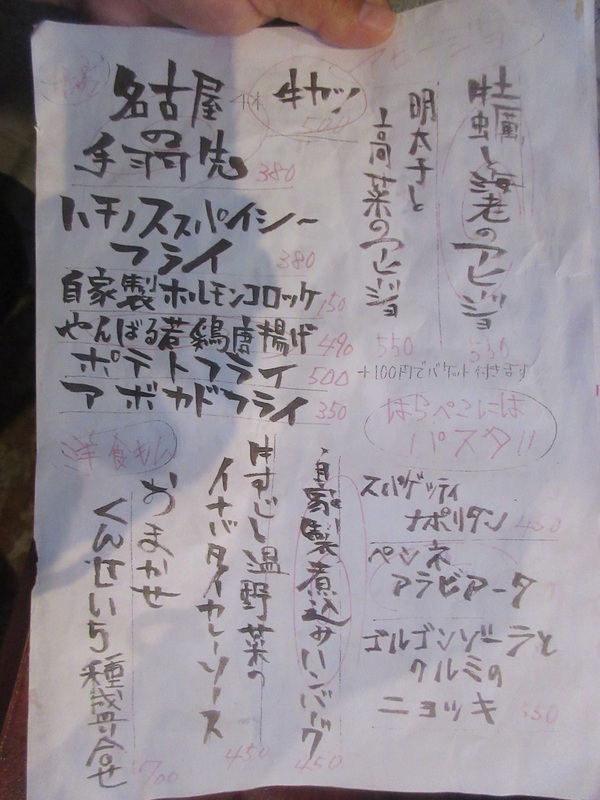 牡蠣と海老のアヒージョ
550
明太子と
高菜のアヒージョ
550
+100円でバケット付きます
牛カツ
500
名古屋
の
手羽先
380
ハチノススパイシー
フライ
380
自家製ホルモンコロッケ
150
やんばる若鶏唐揚げ
490
ポテトフライ
500
アボカドフライ
350
はらぺこには
パスタ!!
スパゲッティ
ナポリタン
450
ペンネ
アラビアータ
ゴルゴンゾーラと
クルミの
ニョッキ
550
洋食もん
自家製煮込みハンバーグ
450
牛すじと温野菜の
イナバタイカレーソース
450
おまかせ
くんせい5種盛り合せ
700